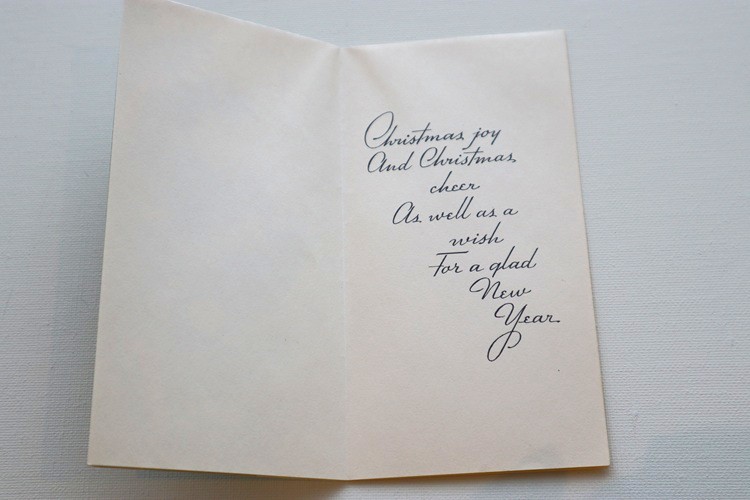 Christmas joy
And Christmas
cheer
As well as a
wish
For a glad
New
Year